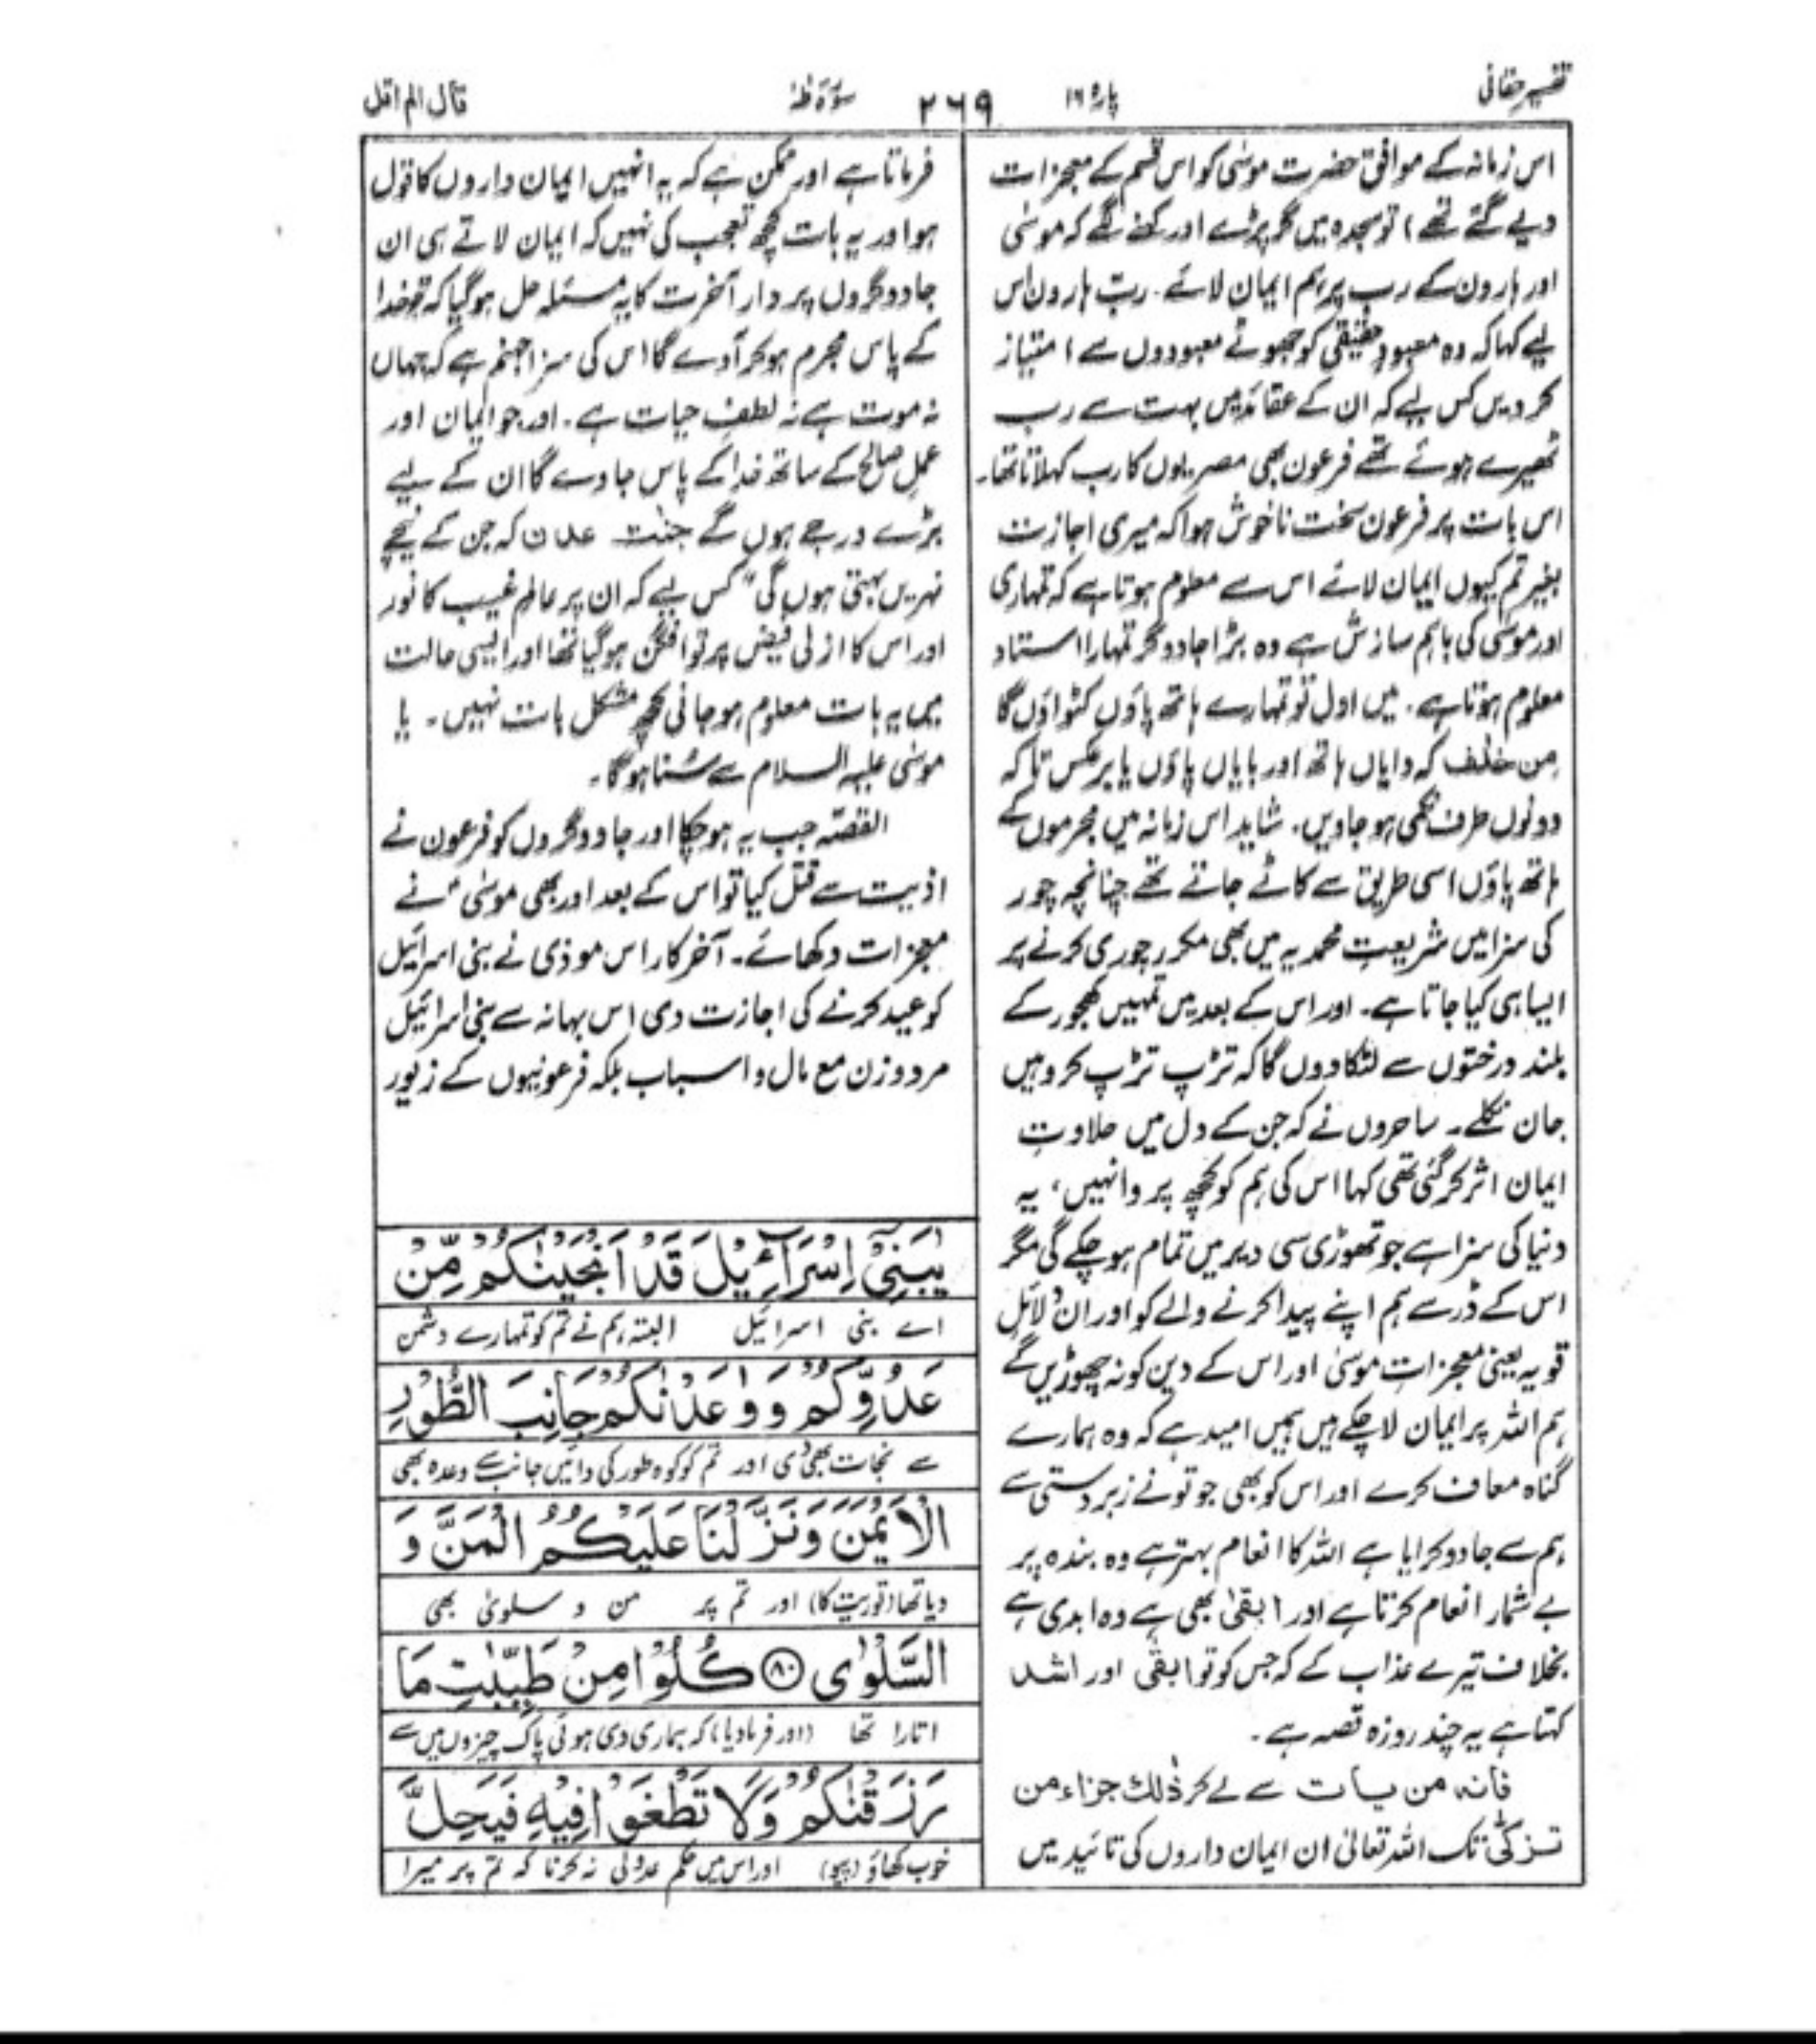 تفسیر حقانی
پارہ ۱۶
۲۶۹
سورۃ طٰہٰ
قال الم اقل
اس زمانہ کے موافق حضرت موسیٰ کو اس قسم کے معجزات
دیے گئے تھے) تو سجدہ میں گر پڑے اور کہنے لگے کہ موسیٰ
اور ہارون کے رب پر ہم ایمان لائے۔ ربّ ہارون اس
لیے کہا کہ وہ معبودِ حقیقی کو جھوٹے معبودوں سے امتیاز
کر دیں کس لیے کہ ان کے عقائد میں بہت سے رب
ٹھیرے ہوئے تھے فرعون بھی مصریوں کا رب کہلاتا تھا۔
اس بات پر فرعون سخت ناخوش ہوا کہ میری اجازت
بغیر تم کیوں ایمان لائے اس سے معلوم ہوتا ہے کہ تمہاری
اور موسیٰ کی باہم سازش ہے وہ بڑا جادوگر تمہارا استاد
معلوم ہوتا ہے۔ میں اول تو تمہارے ہاتھ پاؤں کٹواؤں گا
من خلٰف کہ دایاں ہاتھ اور بایاں پاؤں یا برعکس تاکہ
دونوں طرف نکمی ہو جاویں۔ شاید اس زمانہ میں مجرموں کے
ہاتھ پاؤں اسی طریق سے کاٹے جاتے تھے چنانچہ چور
کی سزا میں شریعتِ محمدیہ میں بھی مکرر چوری کرنے پر
ایسا ہی کیا جاتا ہے۔ اور اس کے بعد میں تمہیں کھجور کے
بلند درختوں سے لٹکا دوں گا کہ تڑپ تڑپ کر وہیں
جان نکلے۔ ساحروں نے کہ جن کے دل میں حلاوتِ
ایمان اثر کر گئی تھی کہا اس کی ہم کو کچھ پروا نہیں، یہ
دنیا کی سزا ہے جو تھوڑی سی دیر میں تمام ہو چکے گی مگر
اس کے ڈر سے ہم اپنے پیدا کرنے والے کو اور ان دلائلِ
قویہ یعنی معجزاتِ موسیٰ اور اس کے دین کو نہ چھوڑیں گے
ہم اللہ پر ایمان لا چکے ہیں ہمیں امید ہے کہ وہ ہمارے
گناہ معاف کرے اور اس کو بھی جو تو نے زبردستی سے
ہم سے جادو کرایا ہے اللہ کا انعام بہتر ہے وہ بندہ پر
بے شمار انعام کرتا ہے اور ابقیٰ بھی ہے وہ ابدی ہے
بخلاف تیرے عذاب کے کہ جس کو تو ابقٰی اور اشد
کہتا ہے یہ چند روزہ قصہ ہے۔
فانہ من یات سے لے کر ذٰلك جزاء من
تزکّٰی تک اللہ تعالیٰ ان ایمان داروں کی تائید میں
فرماتا ہے اور ممکن ہے کہ یہ انہیں ایمان داروں کا قول
ہو اور یہ بات کچھ تعجب کی نہیں کہ ایمان لاتے ہی ان
جادوگروں پر دار آخرت کا یہ مسئلہ حل ہو گیا کہ جو خدا
کے پاس مجرم ہو کر آوے گا اس کی سزا جہنم ہے کہ جہاں
نہ موت ہے نہ لطفِ حیات ہے۔ اور جو ایمان اور
عملِ صالح کے ساتھ خدا کے پاس جاوے گا ان کے لیے
بڑے درجے ہوں گے جنّٰت عدن کہ جن کے نیچے
نہریں بہتی ہوں گی" کس لیے کہ ان پر عالمِ غیب کا نور
اور اس کا ازلی فیض پرتوافگن ہو گیا تھا اور ایسی حالت
میں یہ بات معلوم ہو جانی کچھ مشکل بات نہیں۔ یا
موسیٰ علیہ السلام سے سُنا ہو گا۔
القصّہ جب یہ ہو چکا اور جادوگروں کو فرعون نے
اذیت سے قتل کیا تو اس کے بعد اور بھی موسیٰؑ نے
معجزات دکھائے۔ آخر کار اس موذی نے بنی اسرائیل
کو عید کرنے کی اجازت دی اس بہانہ سے بنی اسرائیل
مرد و زن مع مال و اسباب بلکہ فرعونیوں کے زیور
يٰبَنِيْٓ اِسْرَآءِيْلَ قَدْ اَنْجَيْنٰكُمْ مِّنْ
اے بنی اسرائیل البتہ ہم نے تم کو تمہارے دشمن
عَدُوِّكُمْ وَوٰعَدْنٰكُمْ جَانِبَ الطُّوْرِ
سے نجات بھی دی اور تم کو کوہ طور کی دائیں جانب سے وعدہ بھی
الْاَيْمَنَ وَنَزَّلْنَا عَلَيْكُمُ الْمَنَّ وَ
دیا تھا (توریت کا) اور تم پر من و سلویٰ بھی
السَّلْوٰى ﴿۸۰﴾ كُلُوْا مِنْ طَيِّبٰتِ مَا
اتارا تھا (اور فرما دیا) کہ ہماری دی ہوئی پاک چیزوں میں سے
رَزَقْنٰكُمْ وَلَا تَطْغَوْا فِيْهِ فَيَحِلَّ
خوب کھاؤ (پیو) اور اس میں حکم عدولی نہ کرنا کہ تم پر میرا